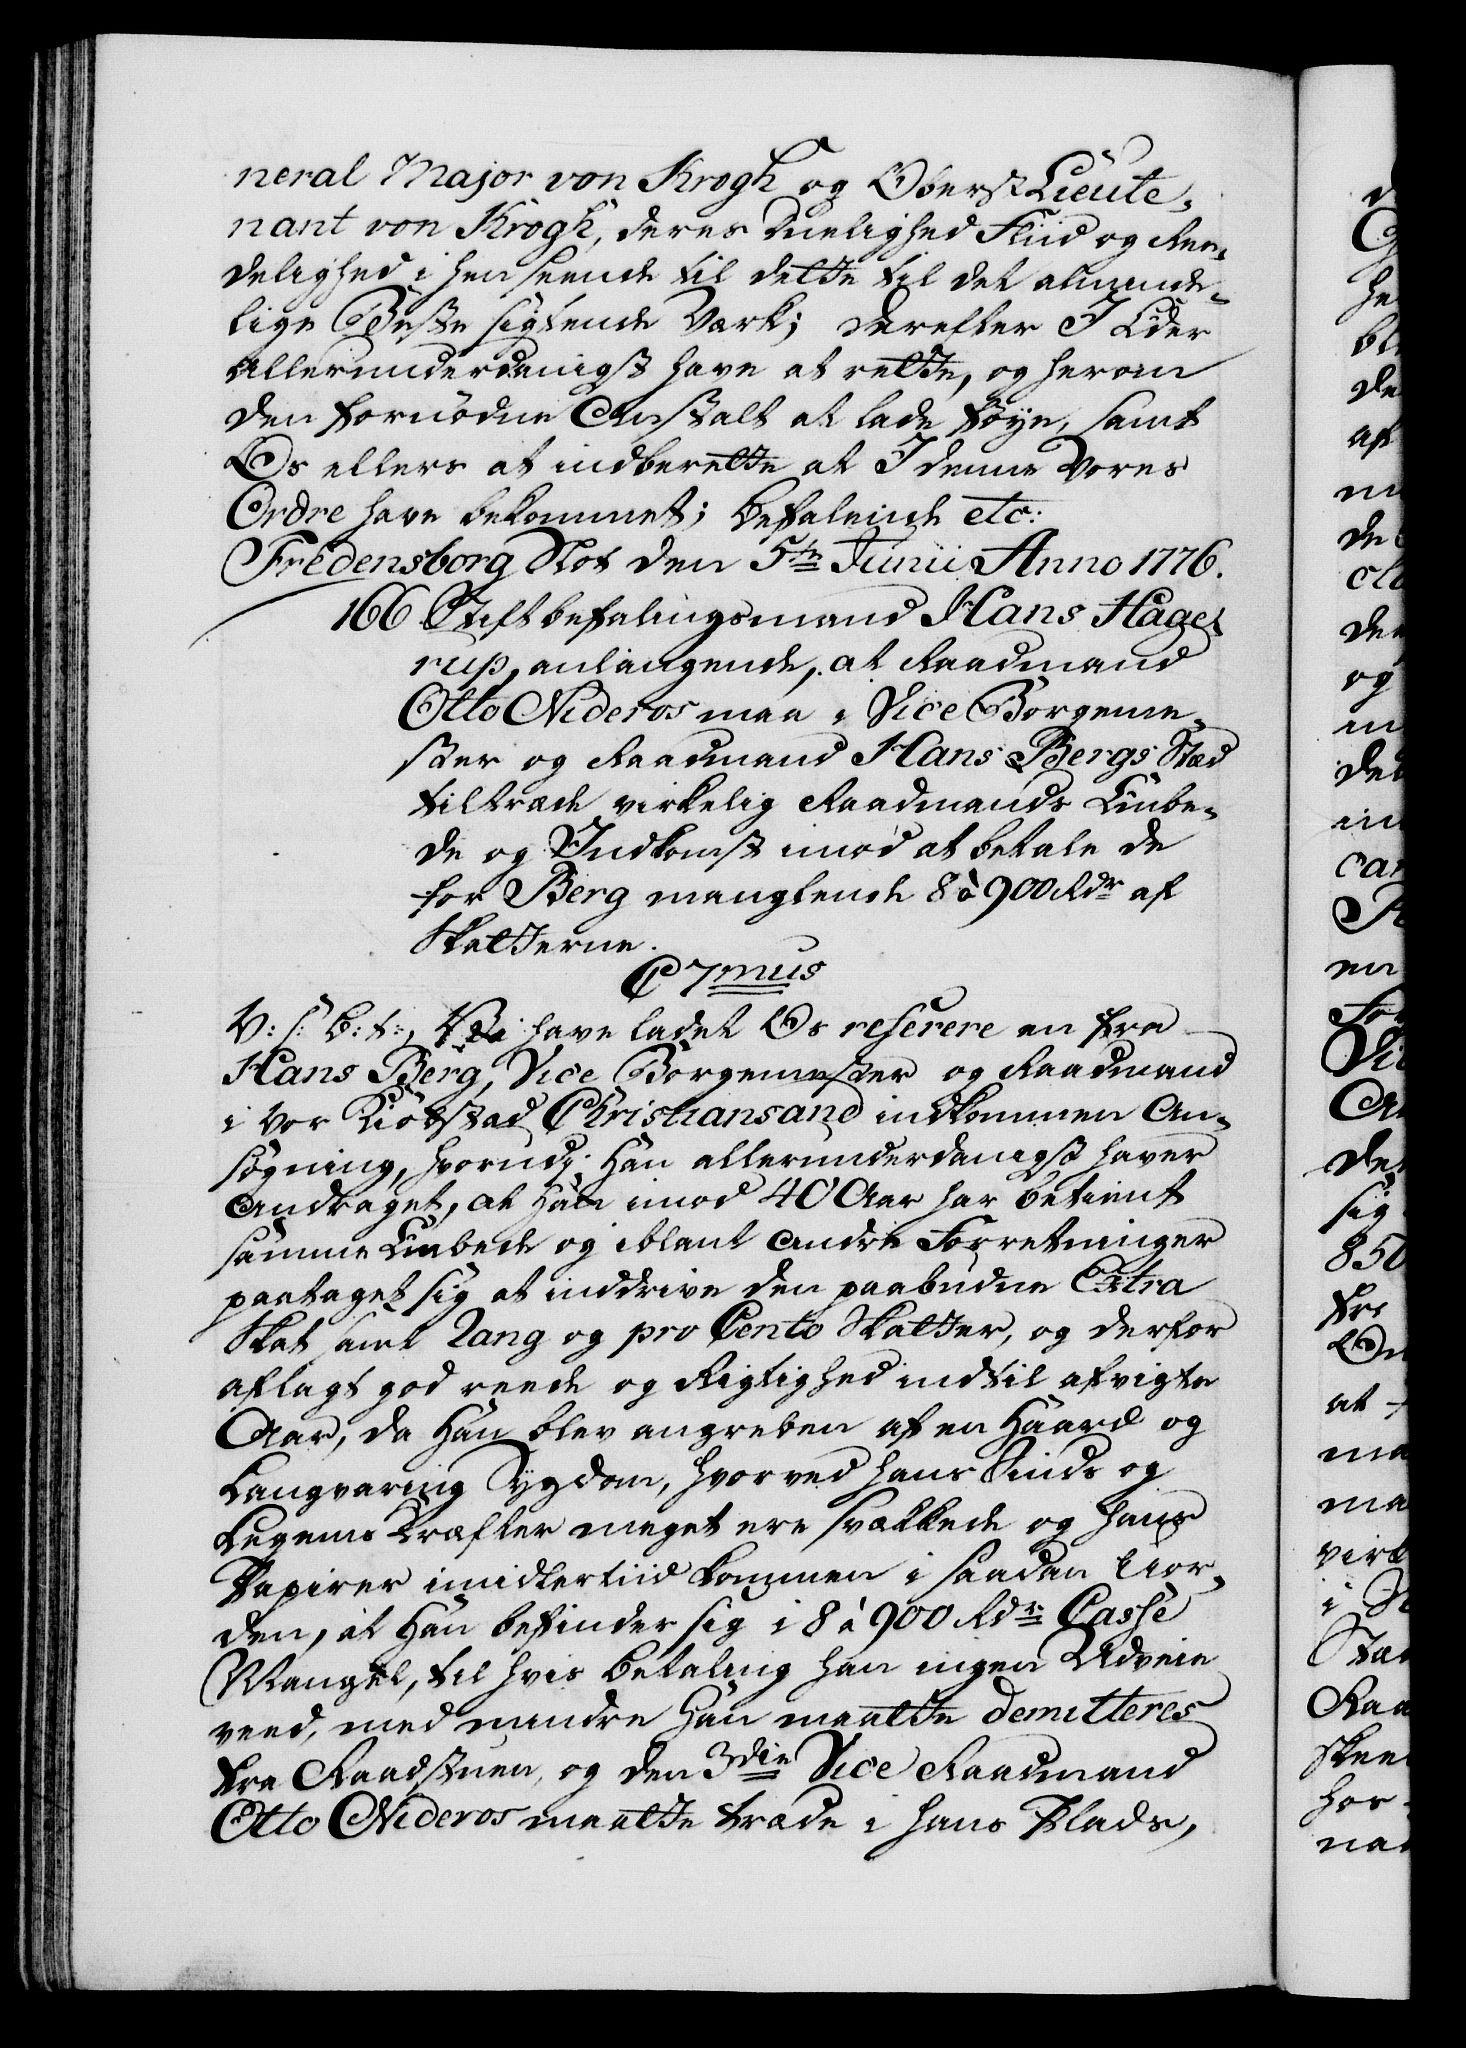 neral Major von Krogh og Oberst Lieute,
nant von Krogh, deres Duelighed Fliid og Ree,
delighed i henseende til dette til det alminde,
lige Beste sigtende Værk; derefter I Eder
allerunderdanigst have at rette, og herom
den fornødne Anstalt at lade føye, samt
Os ellers at indberette at I denne Vores
Ordre have bekommet; Befalende etc:
Fredensborg Slot den 5te Junii Anno 1776.
166 Stiftbefalingsmand Hans Hage,
rup, anlangende, at Raadmand
Otto Nideros maa i Vice Borgeme,
ster og Raadmand Hans Bergs Stæd
tiltræde virkelig Raadmands Embe,
de og Indkomst imod at betale de
for Berg manglende 8 à 900 Rdr af
Skatterne.
C 7mus
V: s: B: t:, Vi have ladet Os referere en fra
Hans Berg, Vice Borgemester og Raadmand
i vor Kiøbstad Christiansand indkommen An,
søgning, hvorudj Han allerunderdanigst haver
andraget, at Han imod 40 Aar har betient
samme Embede og iblant andre Forretninger
paataget sig at inddrive den paabudne Extra
Skat samt Rang og pro Cento Skatter, og derfor
aflagt god reede og Rigtighed indtil afvigte
Aar, da Han blev angreben af en Haard og
Langvarig Sygdom, hvorved hans Sinds og
Legems Kræfter meget ere svækkede og hans
Papirer imidlertiid kommen i saadan Uor,
den, at Han befinder sig i 8 à 900 Rdr Casse
Mangel, til hvis betaling han ingen Udveie
veed, med mindre Han maatte demitteres
fra Raadstuen, og den 3die Vice Raadmand
Otto Nideros maatte træde i hans Plads,